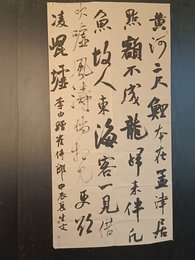 黄河三尺鯉本在孟津居
點額不成龍歸来伴凡
魚故人東海客一見借
吹噓風濤倘相見更欲
凌崐墟 李白贈崔侍郎 甲辰夏